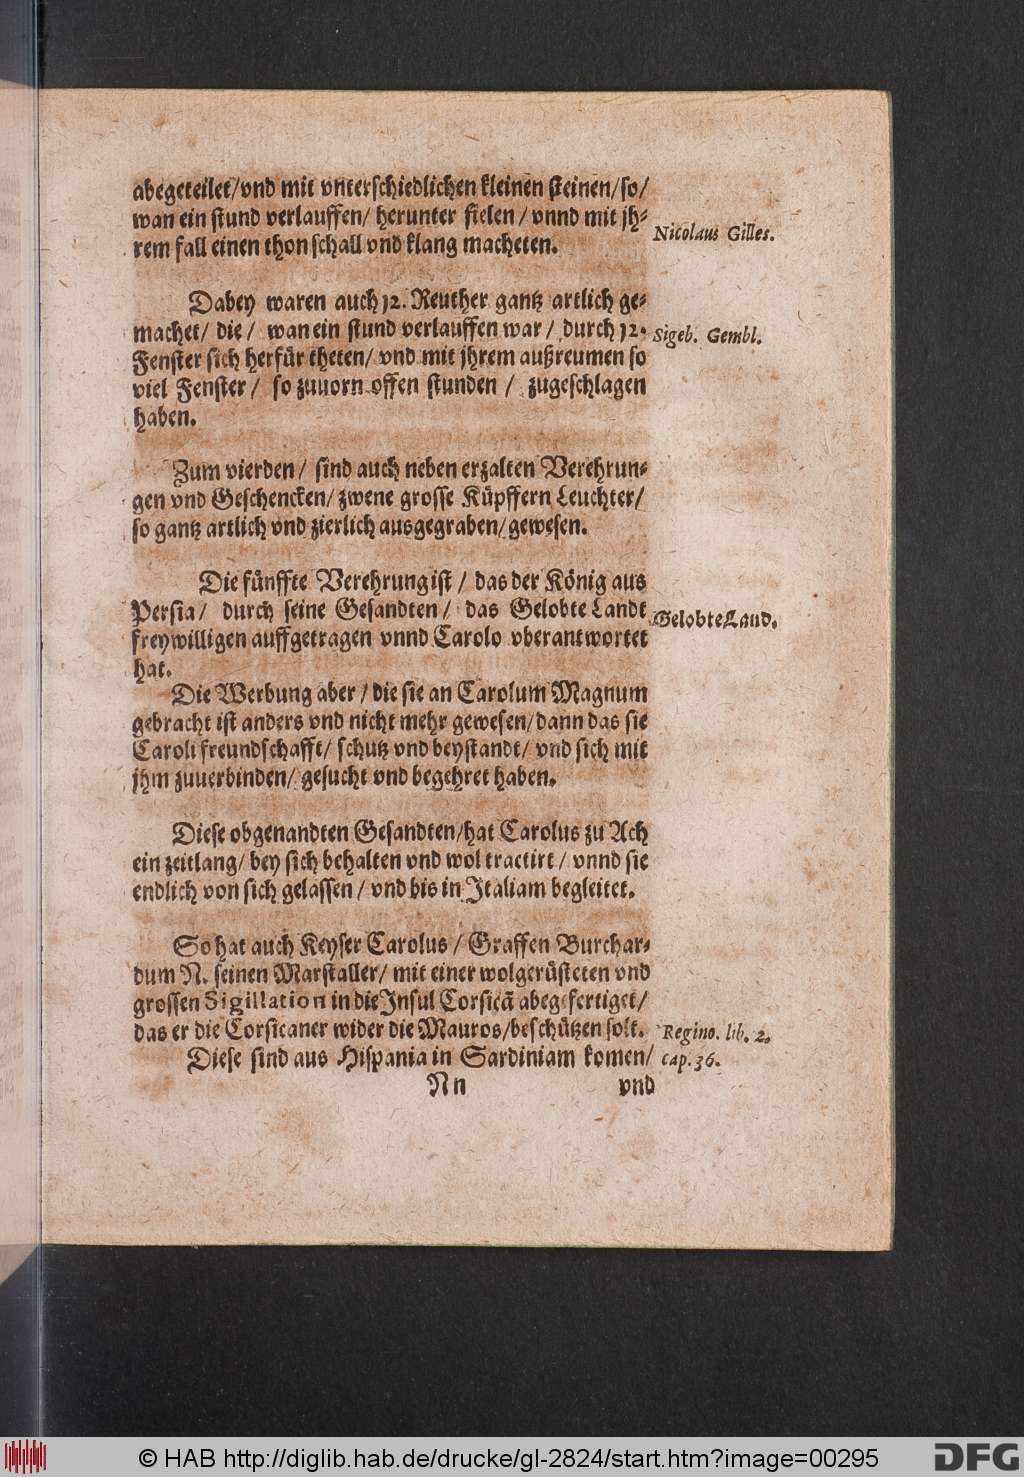 abegeteilet/vnd mit vnterschiedlichen kleinen steinen/so/
wan ein stund verlauffen/ herunter fielen / vnnd mit jh-
rem fall einen thon schall vnd klang macheten.
Nicolaus Gilles.
Dabey waren auch 12. Reuther gantz artlich ge-
machet/ die / wan ein stund verlauffen war / durch 12.
Sigeb. Gembl.
Fenster sich herfür theten/ vnd mit jhrem außreumen so
viel Fenster / so zuuorn offen stunden / zugeschlagen
haben.
Zum vierden / sind auch neben erzalten Verehrun-
gen vnd Geschencken/ zwene grosse Küpffern Leuchter/
so gantz artlich vnd zierlich ausgegraben/gewesen.
Die fünffte Verehrung ist / das der König aus
Persia / durch seine Gesandten / das Gelobte Landt
Gelobte Land.
freywilligen auffgetragen vnnd Carolo vberantwortet
hat.
Die Werbung aber / die sie an Carolum Magnum
gebracht ist anders vnd nicht mehr gewesen/dann das sie
Caroli freundschafft/ schutz vnd beystandt/ vnd sich mit
jhm zuuerbinden/ gesucht vnd begehret haben.
Diese obgenandten Gesandten/hat Carolus zu Ach
ein zeitlang/ bey sich behalten vnd wol tractirt / vnnd sie
endlich von sich gelassen / vnd bis in Italiam begleitet.
So hat auch Keyser Carolus / Graffen Burchar-
dum N. seinen Marstaller/ mit einer wolgerüsteten vnd
grossen Sigillation in die Insul Corsicã abegefertiget/
das er die Corsicaner wider die Mauros/beschützen solt.
Regino. lib. 2.
Diese sind aus Hispania in Sardiniam komen/
cap. 36.
Nn vnd
© HAB http://diglib.hab.de/drucke/gl-2824/start.htm?image=00295
DFG